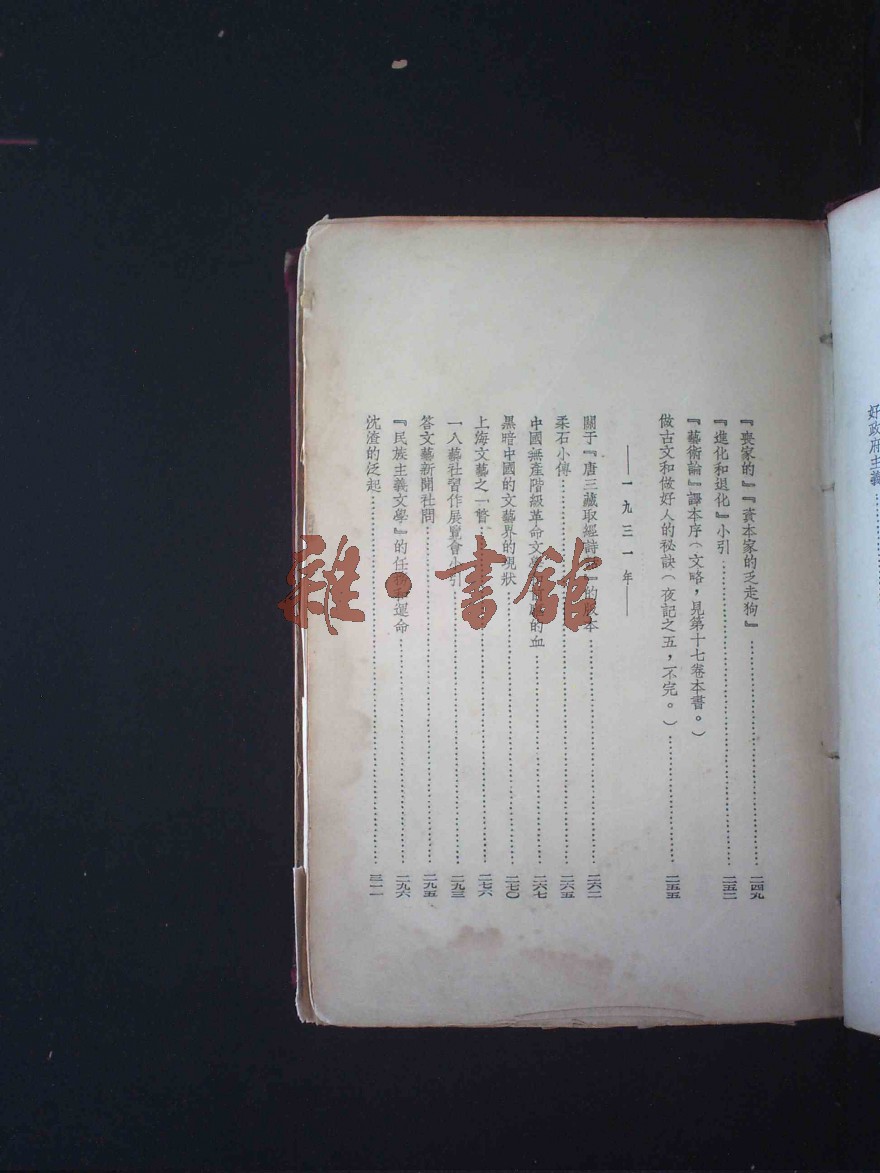 好政府主義
『喪家的』『資本家的乏走狗』…………二四九
『進化和退化』小引…………二五二
『藝術論』譯本序(文略,見第十七卷本書。)
做古文和做好人的秘訣(夜記之五,不完。)…………二五五
——一九三一年——
關于『唐三藏取經詩話』的版本…………二六二
柔石小傳…………二六五
中國無產階級革命文學和前驅的血…………二六七
黑暗中國的文藝界的現狀…………二七〇
上海文藝之一瞥…………二七六
一八藝社習作展覽會小引…………二九三
答文藝新聞社問…………二九五
『民族主義文學』的任務和運命…………二九六
沈渣的泛起…………三一一
雜·書館